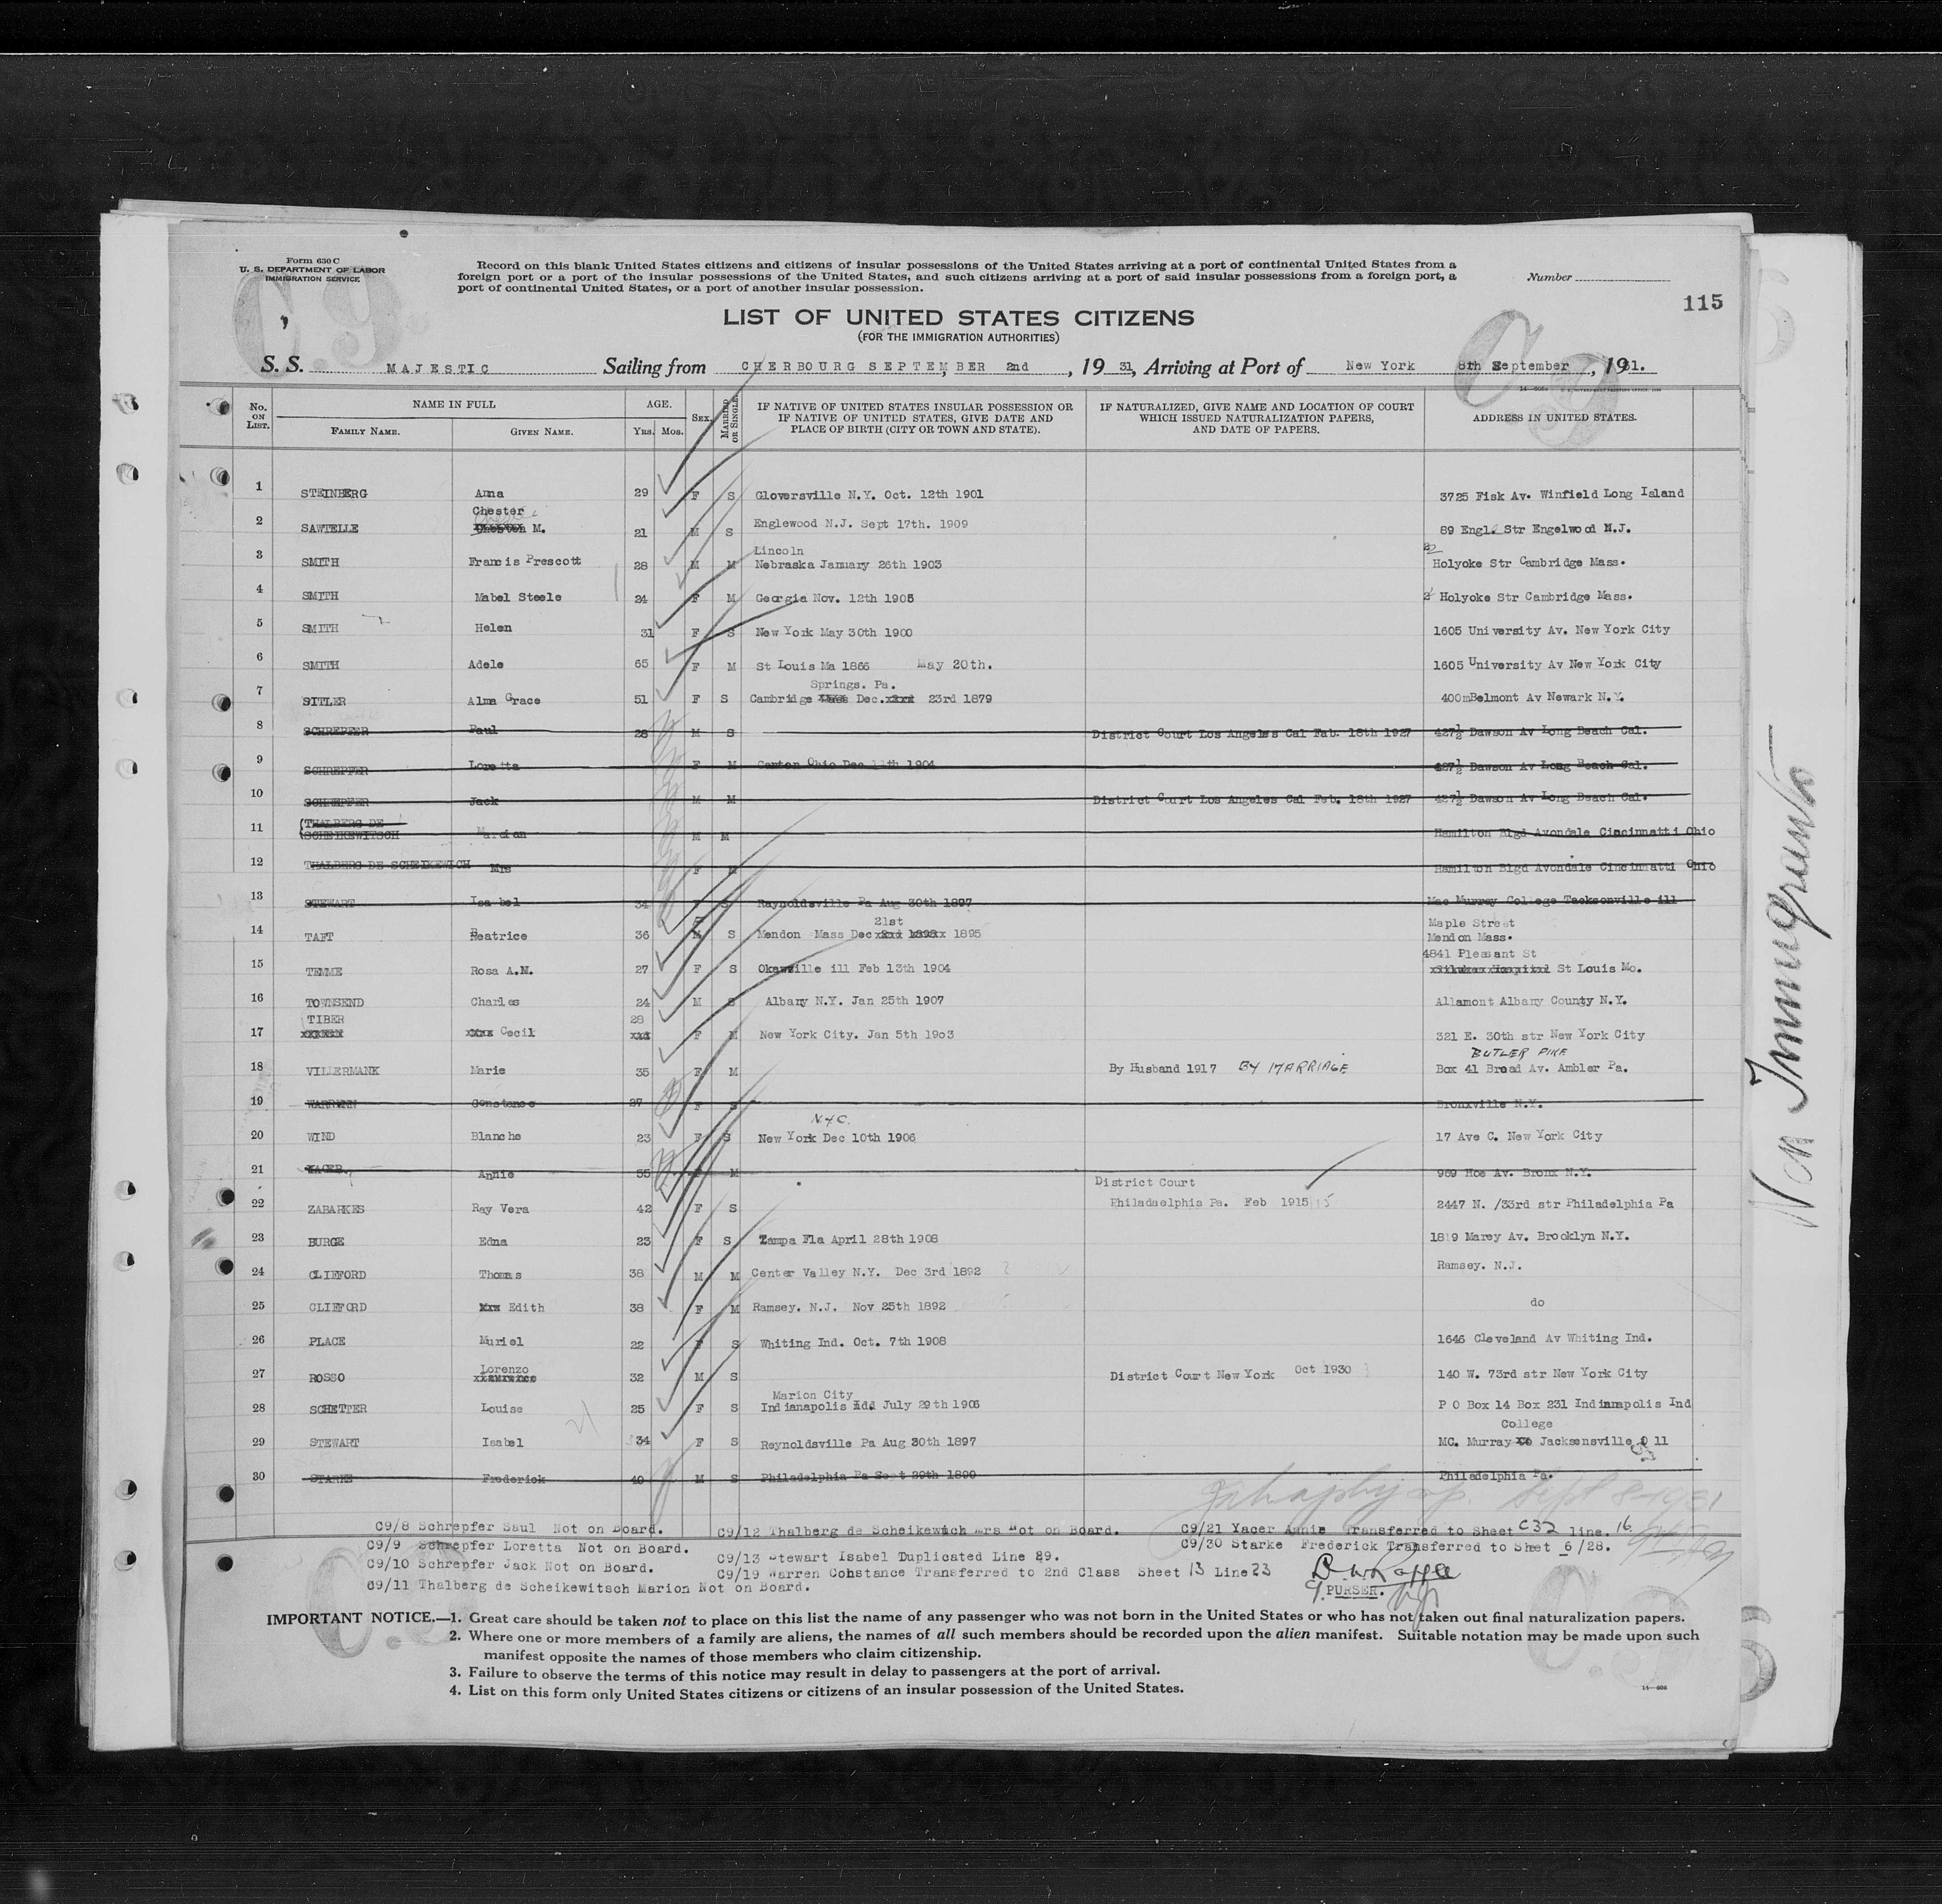 Form 630 C
U. S. DEPARTMENT OF LABOR
IMMIGRATION SERVICE
Record on this blank United States citizens and citizens of insular possessions of the United States arriving at a port of continental United States from a
foreign port or a port of the insular possessions of the United States, and such citizens arriving at a port of said insular possessions from a foreign port, a
port of continental United States, or a port of another insular possession.
Number
115
C.9.
LIST OF UNITED STATES CITIZENS
(FOR THE IMMIGRATION AUTHORITIES)
S. S. MAJESTIC Sailing from CHERBOURG SEPTEMBER 2nd, 19 31, Arriving at Port of New York 8th September, 1931.
No. ON LIST. NAME IN FULL FAMILY NAME. GIVEN NAME. AGE. Yrs. Mos. SEX. MARRIED OR SINGLE. IF NATIVE OF UNITED STATES INSULAR POSSESSION OR IF NATIVE OF UNITED STATES, GIVE DATE AND PLACE OF BIRTH (CITY OR TOWN AND STATE). IF NATURALIZED, GIVE NAME AND LOCATION OF COURT WHICH ISSUED NATURALIZATION PAPERS, AND DATE OF PAPERS. ADDRESS IN UNITED STATES.
1 STEINBERG Anna 29 F S Gloversville N.Y. Oct. 12th 1901 3725 Fisk Av. Winfield Long Island
Chester
2 SAWTELLE M. 21 M S Englewood N.J. Sept 17th. 1909 89 Engl. Str Engelwood N.J.
Lincoln
3 SMITH Francis Prescott 28 M M Nebraska January 26th 1903 Holyoke Str Cambridge Mass.
4 SMITH Mabel Steele 24 F M Georgia Nov. 12th 1905 Holyoke Str Cambridge Mass.
5 SMITH Helen 31 F S New York May 30th 1900 1605 University Av. New York City
6 SMITH Adele 65 F M St Louis Ma 1866 May 20th. 1605 University Av New York City
Springs. Pa.
7 SITLER Alma Grace 51 F S Cambridge Dec. 23rd 1879 400mBelmont Av Newark N.Y.
8 SCHREPFER Paul 28 M S District Court Los Angeles Cal Fab. 18th 1927 427½ Dawson Av Long Beach Cal.
9 SCHREPFER Loretta F M Canton Ohio Dec 11th 1904 427½ Dawson Av Long Beach Cal.
10 SCHREPFER Jack M M District Court Los Angeles Cal Feb. 18th 1927 427½ Dawson Av Long Beach Cal.
THALBERG DE
11 SCHEIKEWITSCH Marcian M M Hamilton Blgd Avondale Cincinnatti Ohio
12 THALBERG DE SCHEIKEWICH Mrs F M Hamilton Blgd Avondale Cincinnatti Ohio
13 STEWART Isabel 34 F S Raynoldsville Pa Aug 30th 1897 Mac Murray College Tacksonville ill
21st Maple Street
14 TAFT Beatrice 36 F S Mendon Mass Dec 1895 Mendon Mass.
4841 Pleasant St
15 TEMME Rosa A.M. 27 F S Okawville ill Feb 13th 1904 St Louis Mo.
16 TOWNSEND Charles 24 M S Albany N.Y. Jan 25th 1907 Allamont Albany County N.Y.
TIBER 28
17 Cecil F M New York City. Jan 5th 19o3 321 E. 30th str New York City
BUTLER PIKE
18 VILLERMANK Marie 35 F M By Husband 1917 BY MARRIAGE Box 41 Broad Av. Ambler Pa.
19 WARRENN Constance 27 F S Bronxville N.Y.
N.Y.C.
20 WIND Blanche 23 F S New York Dec 10th 1906 17 Ave C. New York City
21 YACER. Annie 55 F M 969 Hoe Av. Bronx N.Y.
District Court
22 ZABARKES Ray Vera 42 F S Philadaelphia Pa. Feb 1915 2447 N. /33rd str Philadelphia Pa
23 BURGE Edna 23 F S Tampa Fla April 28th 1908 1819 Marcy Av. Brooklyn N.Y.
24 CLIFFORD Thomas 38 M M Center Valley N.Y. Dec 3rd 1892 Ramsey. N.J.
25 CLIFFORD Edith 38 F M Ramsey. N.J. Nov 25th 1892 do
26 PLACE Muriel 22 F S Whiting Ind. Oct. 7th 1908 1646 Cleveland Av Whiting Ind.
Lorenzo
27 ROSSO 32 M S District Court New York Oct 1930 140 W. 73rd str New York City
Marion City
28 SCHETTER Louise 25 F S Indianapolis Idd July 29th 1906 P O Box 14 Box 231 Indianapolis Ind
College
29 STEWART Isabel 34 F S Reynoldsville Pa Aug 30th 1897 MC. Murray Jacksensville
30 STARKE Frederick 40 M S Philadelphia Pa Sept 29th 1890 Philadelphia Pa.
Sept 8-1931
C9/8 Schrepfer Saul Not on Board.
C9/9 Schrepfer Loretta Not on Board.
C9/10 Schrepfer Jack Not on Board.
C9/11 Thalberg de Scheikewitsch Marion Not on Board.
C9/12 Thalberg de Scheikewich Mrs Not on Board.
C9/13 Stewart Isabel Duplicated Line 29.
C9/19 Warren Constance Transferred to 2nd Class Sheet 13 Line 23
C9/21 Yacer Annie Transferred to Sheet C32 line. 16
C9/30 Starke Frederick Transferred to Sheet 6/28.
PURSER.
IMPORTANT NOTICE.—1. Great care should be taken not to place on this list the name of any passenger who was not born in the United States or who has not taken out final naturalization papers.
2. Where one or more members of a family are aliens, the names of all such members should be recorded upon the alien manifest. Suitable notation may be made upon such
manifest opposite the names of those members who claim citizenship.
3. Failure to observe the terms of this notice may result in delay to passengers at the port of arrival.
4. List on this form only United States citizens or citizens of an insular possession of the United States.
Non Immigrants